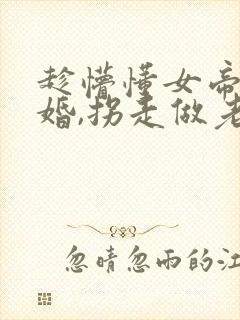 趁懵懂女帝
婚,拐走做老
忽晴忽雨的江